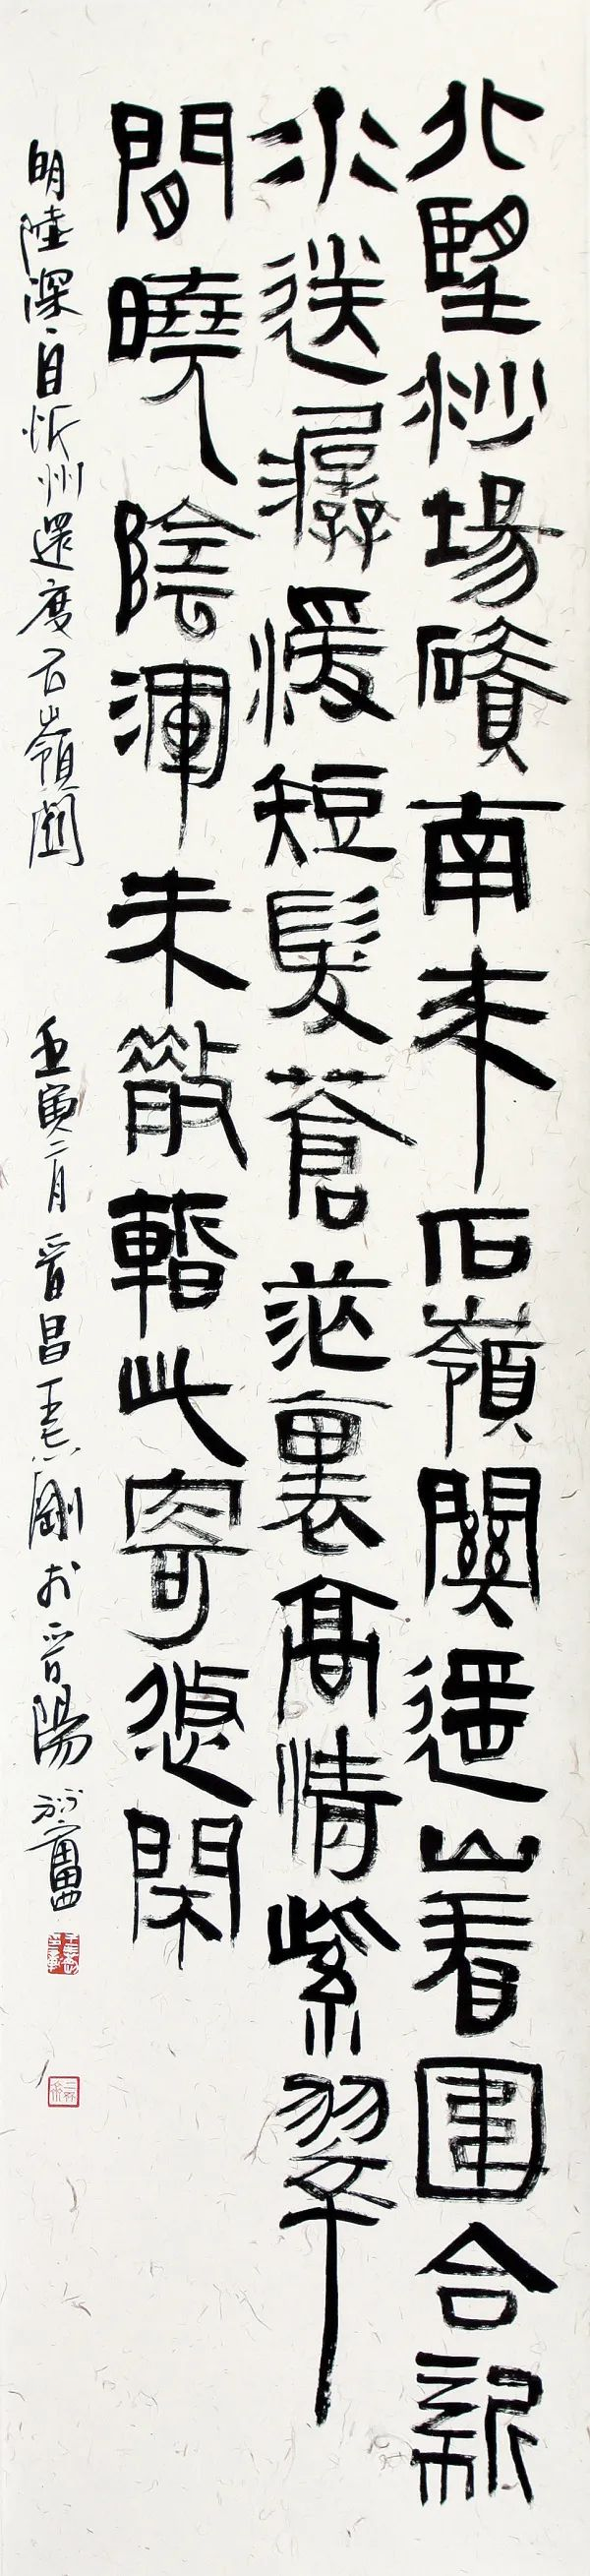 北望沙場磧南來石嶺關遥山看圍合亂
水送潺湲短髮蒼茫裏高情紫翠
間曉陰渾未散暫此寄悠閑
明陸深自忻州還度石嶺關 壬寅二月晉昌王志剛於晉陽